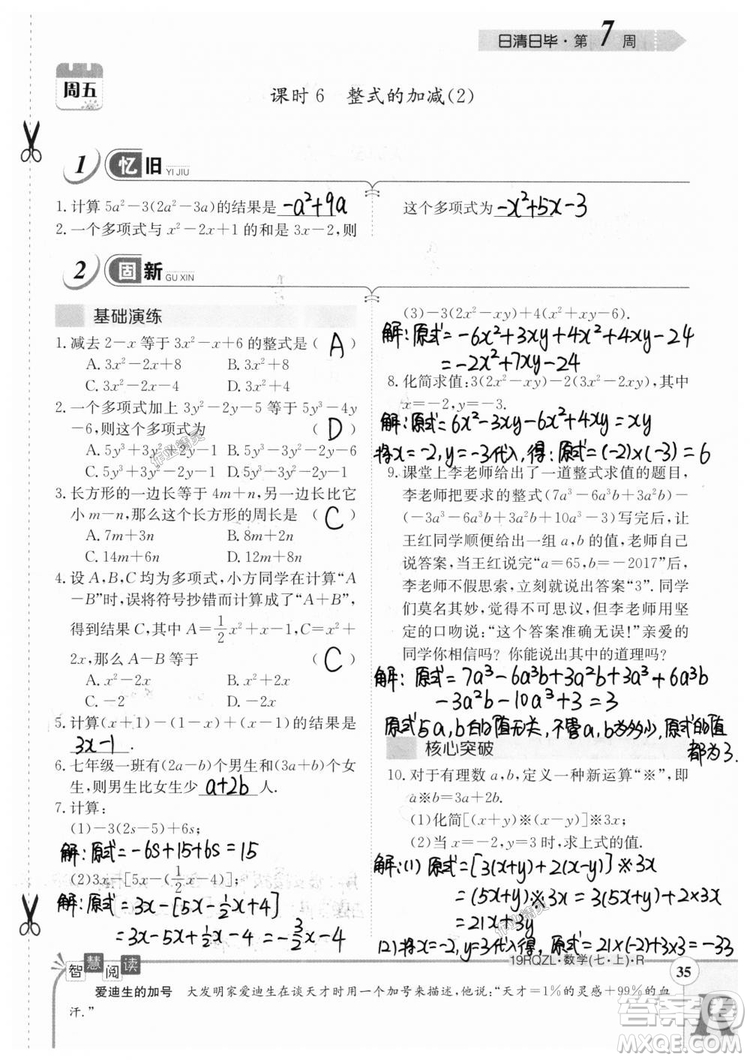 日清日毕·第7周
周五
课时6 整式的加减(2)
1 忆旧 YI JIU
1.计算5a²-3(2a²-3a)的结果是 -a²+9a
2.一个多项式与x²-2x+1的和是3x-2,则
这个多项式为 -x²+5x-3
2 固新 GU XIN
基础演练
1.减去2-x等于3x²-x+6的整式是( A )
A.3x²-2x+8 B.3x²+8
C.3x²-2x-4 D.3x²+4
2.一个多项式加上3y²-2y-5等于5y³-4y
-6,则这个多项式为 ( D )
A.5y³+3y²+2y-1
B.5y³-3y²-2y-6
C.5y³+3y²-2y-1
D.5y³-3y²-2y-1
3.长方形的一边长等于4m+n,另一边长比它
小m-n,那么这个长方形的周长是 ( C )
A.7m+3n B.8m+2n
C.14m+6n D.12m+8n
4.设A,B,C均为多项式,小方同学在计算“A
-B”时,误将符号抄错而计算成了“A+B”,
得到结果C,其中A=1/2x²+x-1,C=x²+
2x,那么A-B等于 ( C )
A.x²-2x B.x²+2x
C.-2 D.-2x
5.计算(x+1)-(1-x)+(x-1)=
3x-1.
6.七年级一班有(2a-b)个男生和(3a+b)个女
生,则男生比女生少 a+2b 人.
7.计算:
(1)-3(2s-5)+6s;
解:原式=-6s+15+6s=15
(2)3x-[5x-(1/2x-4)];
解:原式=3x-[5x-1/2x+4]
=3x-5x+1/2x-4=-3/2x-4
(3)-3(2x²-xy)+4(x²+xy-6).
解:原式=-6x²+3xy+4x²+4xy-24
=-2x²+7xy-24
8.化简求值:3(2x²-xy)-2(3x²-2xy),其
中x=-2,y=-3.
解:原式=6x²-3xy-6x²+4xy=xy
将x=-2,y=-3代入,得:原式=(-2)×(-3)=6
9.课堂上李老师给出了一道整式求值的题目,
李老师把要求的整式(7a³-6a³b+3a²b)-
(-3a³-6a³b+3a²b+10a³-3)写完后,让
王红同学顺便给出一组a,b的值,老师自己
说答案,当王红说完“a=65,b=-2017”后,
李老师不假思索,立刻就说出答案“3”.同学
们莫名其妙,觉得不可思议,但李老师用坚
定的口吻说:“这个答案准确无误!”亲爱的
同学你相信吗?你能说出其中的道理吗?
解:原式=7a³-6a³b+3a²b+3a³+6a³b
-3a²b-10a³+3=3
原式与a,b的值无关,不管a,b为多少,原式的值
都为3.
核心突破
10.对于有理数a,b,定义一种新运算“※”,即
a※b=3a+2b.
(1)化简[(x+y)※(x-y)]※3x;
(2)当x=-2,y=3时,求上式的值.
解:(1)原式=[3(x+y)+2(x-y)]※3x
=(5x+y)※3x
=3(5x+y)+2×3x
=21x+3y
(2)将x=-2,y=3代入,原式=-42+9=-33
智慧阅读
19RQZL·数学(七·上)·R
35
爱迪生的加号 大发明家爱迪生在谈天才时用一个加号来描述,他说:“天才=1%的灵感+99%的血
汗.”
答案圈
MXQE.COM